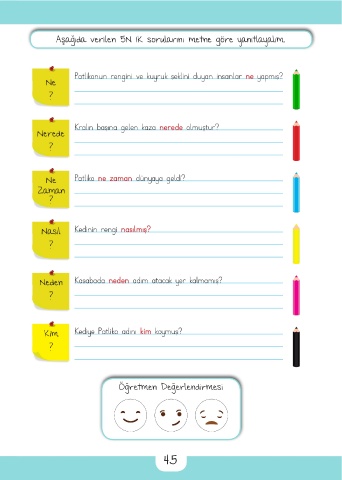 Aşağıda verilen 5N 1K sorularını metne göre yanıtlayalım.
Ne
?
Patlikanun rengini ve kuyruk şeklini duyan insanlar ne yapmış?
Nerede
?
Kralın başına gelen kaza nerede olmuştur?
Ne
Zaman
?
Patliko ne zaman dünyaya geldi?
Nasıl
?
Kedinin rengi nasılmış?
Neden
?
Kasabada neden adım atacak yer kalmamış?
Kim
?
Kediye Patliko adını kim koymuş?
Öğretmen Değerlendirmesi
45